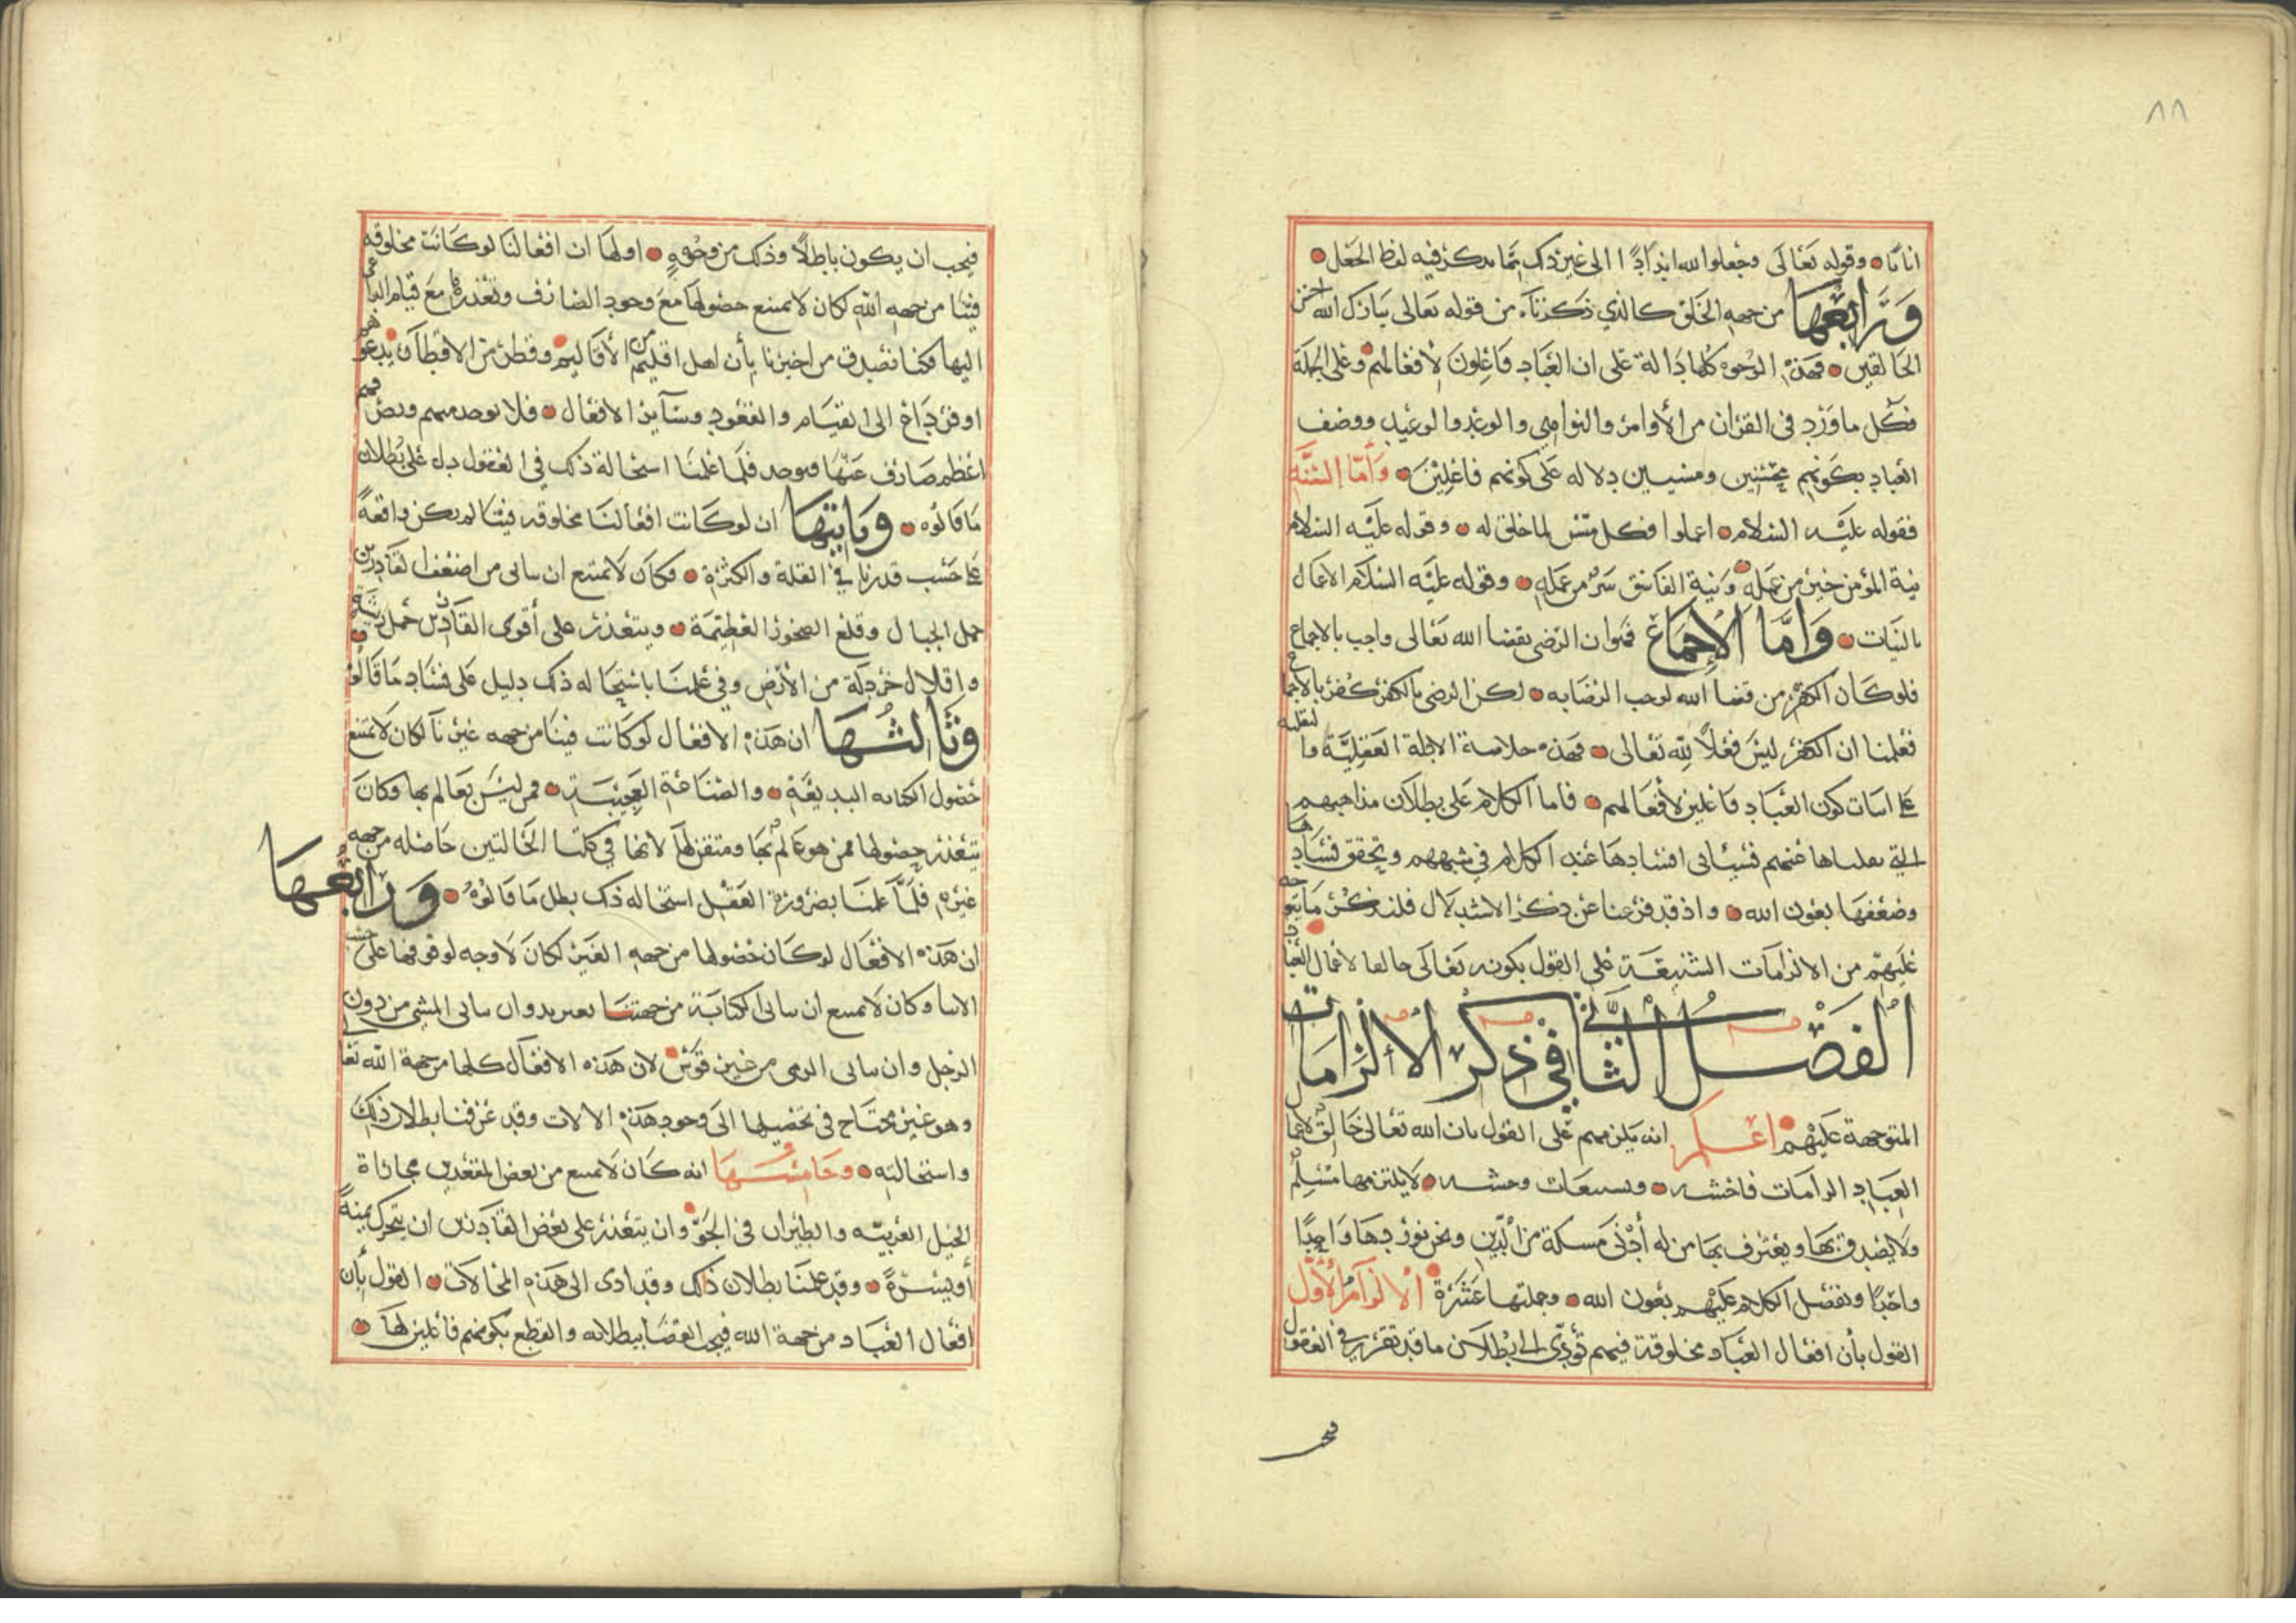 ٨٨
اناثا وقوله تعالى وجعلوا لله اندادا الى غير ذلك مما يذكر فيه لفظ الجعل
ورابعها من جهه الخلق كالذي ذكرناه من قوله تعالى تبارك الله احسن
الخالقين فهذه الوجوه كلها دالة على ان العباد فاعلون لافعالهم وعلى الجملة
فكل ما ورد في القران من الأوامر والنواهي والوعد والوعيد ووصف
العباد بكونهم محسنين ومسيين دلاله على كونهم فاعلين وأما السنة
فقوله عليه السلام اعملوا فكل ميسر لما خلق له وقوله عليه السلام
نية المؤمن خير من عمله ونية الفاسق شر من عمله وقوله عليه السلام الاعمال
بالنيات وأما الإجماع فهو ان الرضى بقضا الله تعالى واجب بالاجماع
فلو كان الكفر من قضا الله لوجب الرضا به لكن الرضى بالكفر كفر بالاجماع
فعلمنا ان الكفر ليس فعلاً لله تعالى فهذه خلاصة الادلة العقلية والنقلية
على اثبات كون العباد فاعلين لأفعالهم فاما الكلام على بطلان مذاهبهم
التي نقلناها عنهم فسياتى افسادها عند الكلام في شبههم وتحقق فسادها
وضعفها بعون الله واذ قد فرغنا عن ذكر الاستدلال فلنذكر ما يتوجه
عليهم من الالزامات الشنيعة على القول بكونه تعالى خالقا لاعمال العباد
الفصل الثاني في ذكر الالزامات
المتوجهة عليهم اعلم انه يلزمهم على القول بان الله تعالى خالق لاعمال
العباد الزامات فاحشه وتشيعات وحشه لا يلتزمها مسلم
ولا يصدق بها ويعترف بها من له أدنى مسكة من الدين ونحن نوردها واحدا
واحدا ونفصل الكلام عليهم بعون الله وجملتها عشرة الالزام الأول
القول بأن افعال العباد مخلوقة فيهم تؤدى الى ابطال ما قد تقرر في العقول
فيجب ان يكون باطلاً وذلك من وجوه اولها ان افعالنا لو كانت مخلوقه
فينا من جهه الله لكان لا يمتنع حصولها مع وجود الصارف وتعذرها مع قيام الداعي
اليها فكنا نصدق من اخبرنا بأن اهل اقليم من الأقاليم وقطر من الاقطار يدعوهم
اوفر داع الى القيام والقعود وسآير الافعال فلا يوجد منهم ويصرفهم
اعظم صارف عنها فيوجد فلما علمنا استحالة ذلك في العقول دل على بطلان
ما قالوه وثانيها ان لو كانت افعالنا مخلوقه فينا لم يكن واقعةً
على حسب قدرنا في القلة والكثرة فكان لا يمتنع ان يتاتى من اضعف القادرين
حمل الجبال وقلع الصخور العظيمة ويتعذر على أقوى القادرين حمل ريشة
واقلال خردلة من الأرض وفي علمنا باستحاله ذلك دليل على فساد ما قالوه
وثالثها ان هذه الافعال لو كانت فينا من جهه غيرنا لكان لا يمتنع
حصول الكتابه البديعة والصناعة العجيبة ممن ليس بعالم بها وكان
يتعذر حصولها ممن هو عالم بها ومتقن لها لانها في كلتا الحالتين حاصله من جهه
غيره فلما علمنا بضرورة العقل استحاله ذلك بطل ما قالوه ورابعها
ان هذه الافعال لو كان حصولها من جهه الغير لكان لا وجه لوقوفها على حسب
الاتنا وكان لا يمتنع ان يتاتى الكتابة من جهتنا بغير يد وان يتاتى المشي من دون
الرجل وان يتاتى الرمى من غير قوس لان هذه الافعال كلها من جهة الله تعالى
وهو غير محتاج في تحصيلها الى وجود هذه الالات وقد عرفنا بطلان ذلك
واستحالته وخامسها انه كان لا يمتنع من بعض المقعدين مجاراة
الخيل العربيه والطيران في الجو وان يتعذر على بعض القادرين ان يتحرك يمنةً
أو يسرةً وقد علمنا بطلان ذلك وقد ادى الى هذه المحالات القول بأن
افعال العباد من جهة الله فيجب القضا ببطلانه والقطع بكونهم فاعلين لها